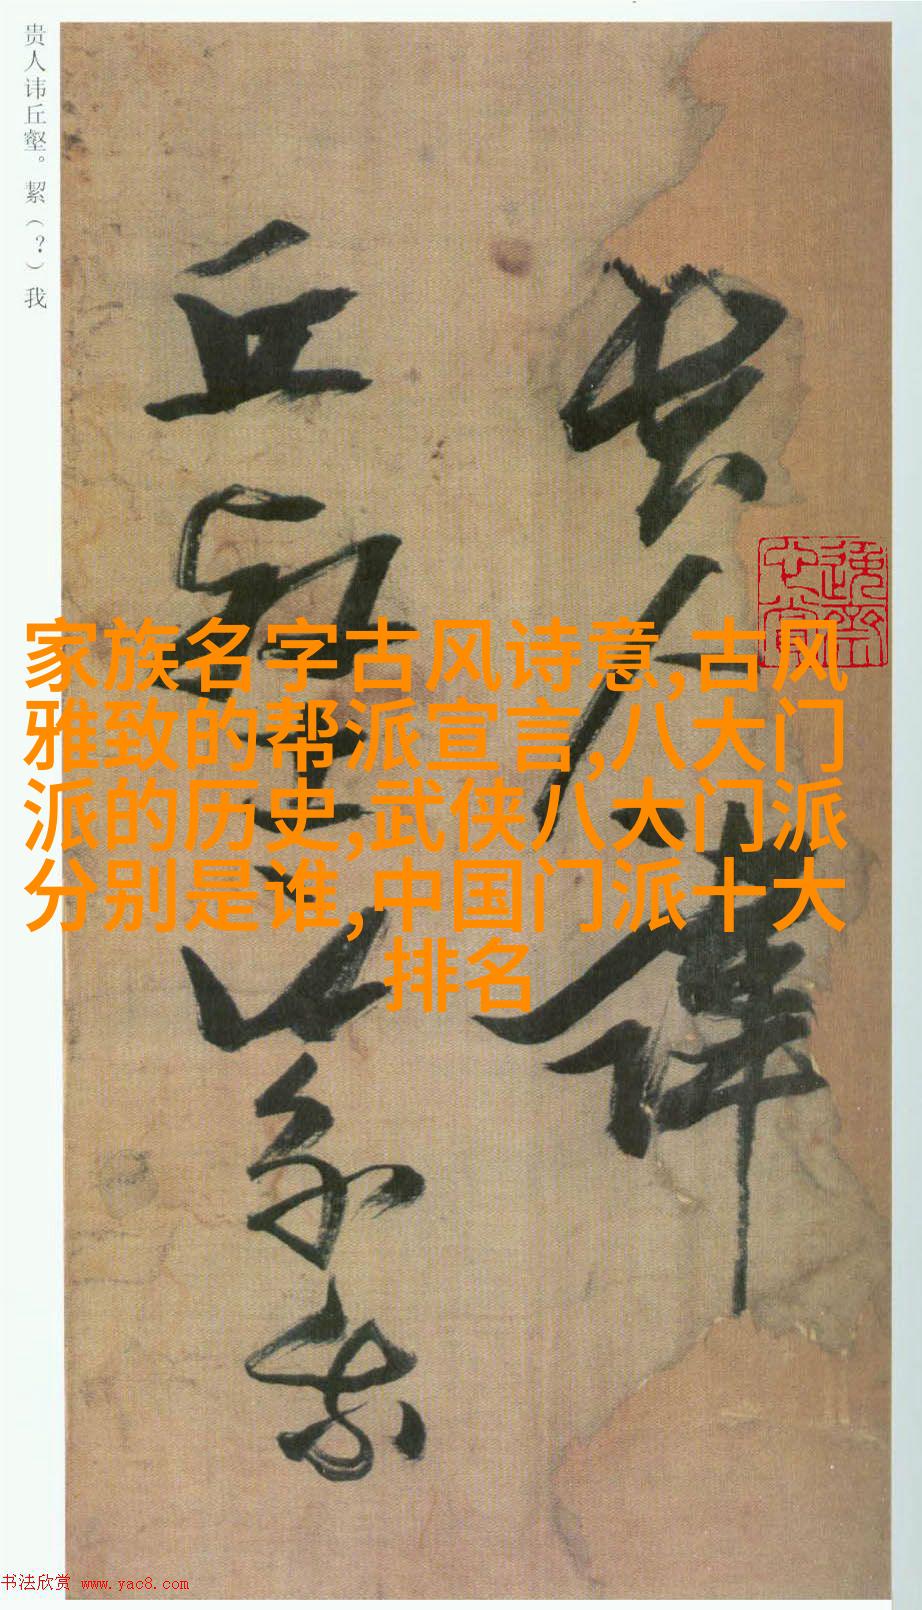 贵人讳丘壑。絜（？）我
贵人讳
丘壑絜我
家族名字古风诗意,古风
雅致的帮派宣言,八大门
派的历史,武侠八大门派
分别是谁,中国门派十大
排名
书法欣赏 www.yac8.com